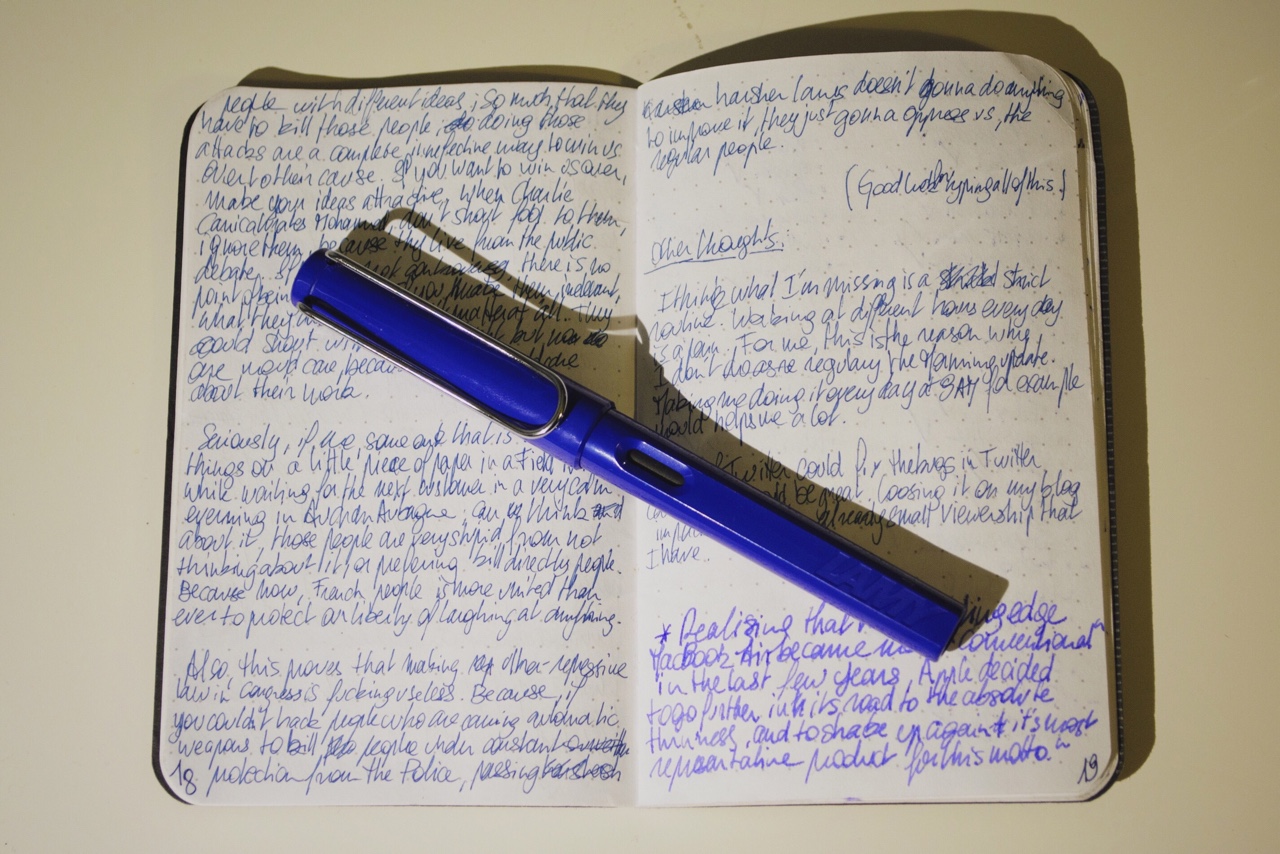 people with different ideas, so much that they
have to kill those people, doing those
attacks are a complete inefective way to win us
over to their cause. If you want to win us over,
make your ideas attractive, When Charlie
Mohammed, don't shout to them,
ignore them, because they live from the public
debate. there is no
point of you make them irelevant,
what they matter at all. They
could shout but
are more care, because
about their work.
Seriously, if me, someone that is
things on a little piece of paper in a Field
while waiting for the next customer in a very calm
evening in Auchan Aubagne, can think
about it, those people are very stupid from not
thinking about it or prefering kill directly people.
Because now, French people is more united than
ever to protect our liberty of laughing at anything.
Also, this proves that making other repressive
law in Congress is fucking useless. Because, if
you couldn't track people who are carrying automatic
weapons to kill people under constant
protection from the Police, passing
18
harsher laws doesn't gonna do anything
to improve it, they just gonna oppress us, the
regular people.
(Good luck typing all of this.)
Other thoughts.
I think what I'm missing is a strict
routine. Working at different hours every day
is a pain. For me, this is the reason why
I don't do as regulary the Morning update.
Making me doing it every day at 9AM for example
would helps me a lot.
Twitter could fix the bugs in Twitter
be great. Loosing it on my blog
already small viewership that
I have.
* Realizing that edge
MacBook Air became conventional"
in the last few years, Apple decided
to go further in its road to the absolute
thinness, and to shake up again it's most
representative product for this moto."
19
LAMY